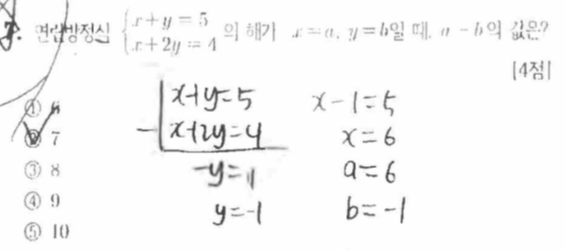 7. 연립방정식 { x+y=5 x+2y=4 의 해가 x=a, y=b일 때, a-b의 값은?
[4점]
① 6
② 7
③ 8
④ 9
⑤ 10
x+y=5
- x+2y=4
-y=1
y=-1
x-1=5
x=6
a=6
b=-1